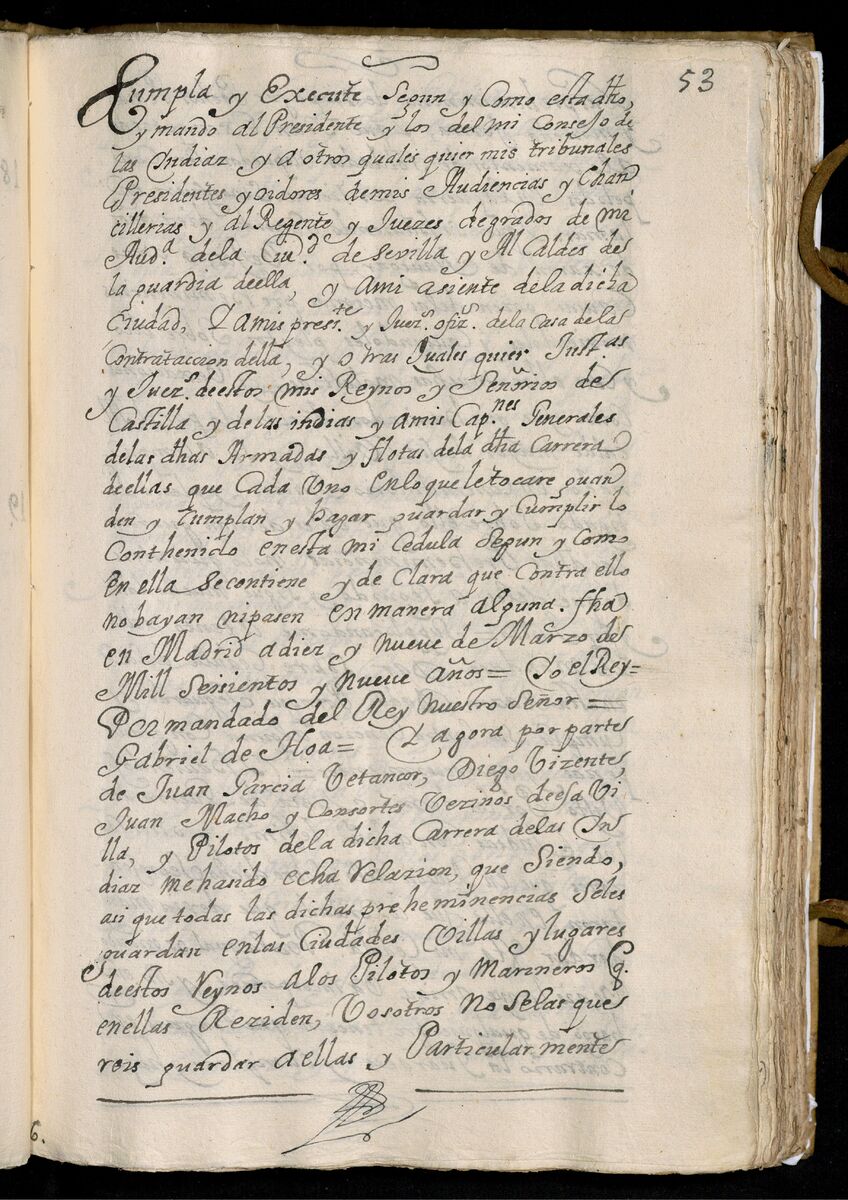 53
Cumpla y Execute Segun y Como esta dho,
y mando al Presidente y los del mi Consejo de
las Indiaz y a otros quales quier mis tribunales
Presidentes y oidores demis Audiencias y Chan
cillerias y al Regente y Juezes de grados de mi
Aud.ª dela Ciu.d de Sevilla y Al Caldes de
la guardia deella, y ami asiente dela dicha
Ciudad, Y amis press.te y Juez.s ofiz.s dela Casa delas
Contrataccion della, y otras Quales quier Just.as
y Juez.s deestos mis Reynos y Señorios de
Castilla y delas indias y amis Cap.nes Generales
delas dhas Armadas y flotas dela dha Carrera
deellas que Cada Uno Enloqueletocare guan
den y Cumplan y hagar guardar y Cumplir lo
Conthenido enesta mi Cedula Segun y Como
En ella Secontiene y de Clara que Contra ello
no bayan nipasen en manera alguna. fha
en Madrid adiez y nueve de Marzo de
Mill Seisientos y Nueve años= Yo el Rey=
Por mandado del Rey Nuestro Señor=
Gabriel de Hoa= Y agora por parte
de Juan Garcia Vetancor, Diego Vizente,
Juan Macho y Consortes Vezinos deesa Vi
lla, y Pilotos dela dicha Carrera delas In
diaz mehasido echa Relazion, que Siendo,
asi que todas las dichas preheminencias Seles
guardan enlas Ciudades Villas y lugares
deestos Reynos alos Pilotos y Marineros q.
enellas Reziden, Vosotros no Selas que
reis guardar aellas y Particularmente
6.